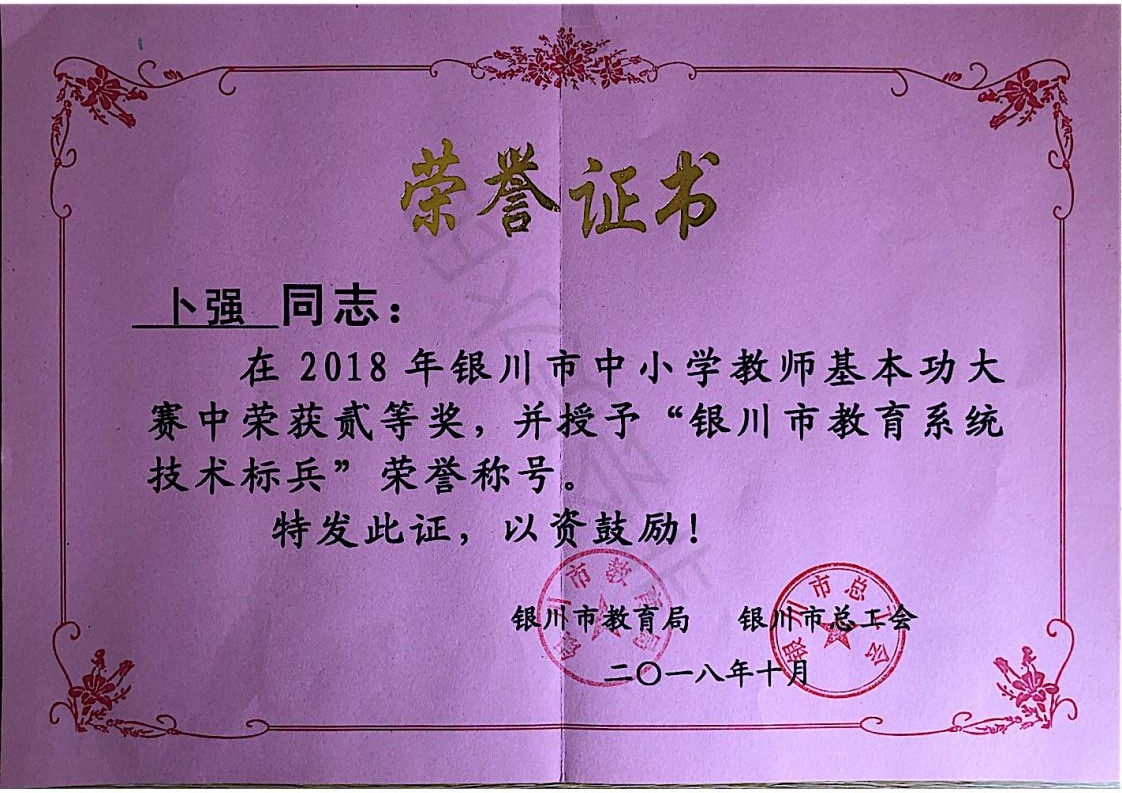 荣誉证书
卜强 同志：
在 2018 年银川市中小学教师基本功大
赛中荣获贰等奖，并授予“银川市教育系统
技术标兵”荣誉称号。
特发此证，以资鼓励！
银川市教育局 银川市总工会
二〇一八年十月
川市教育局
银川市总工会